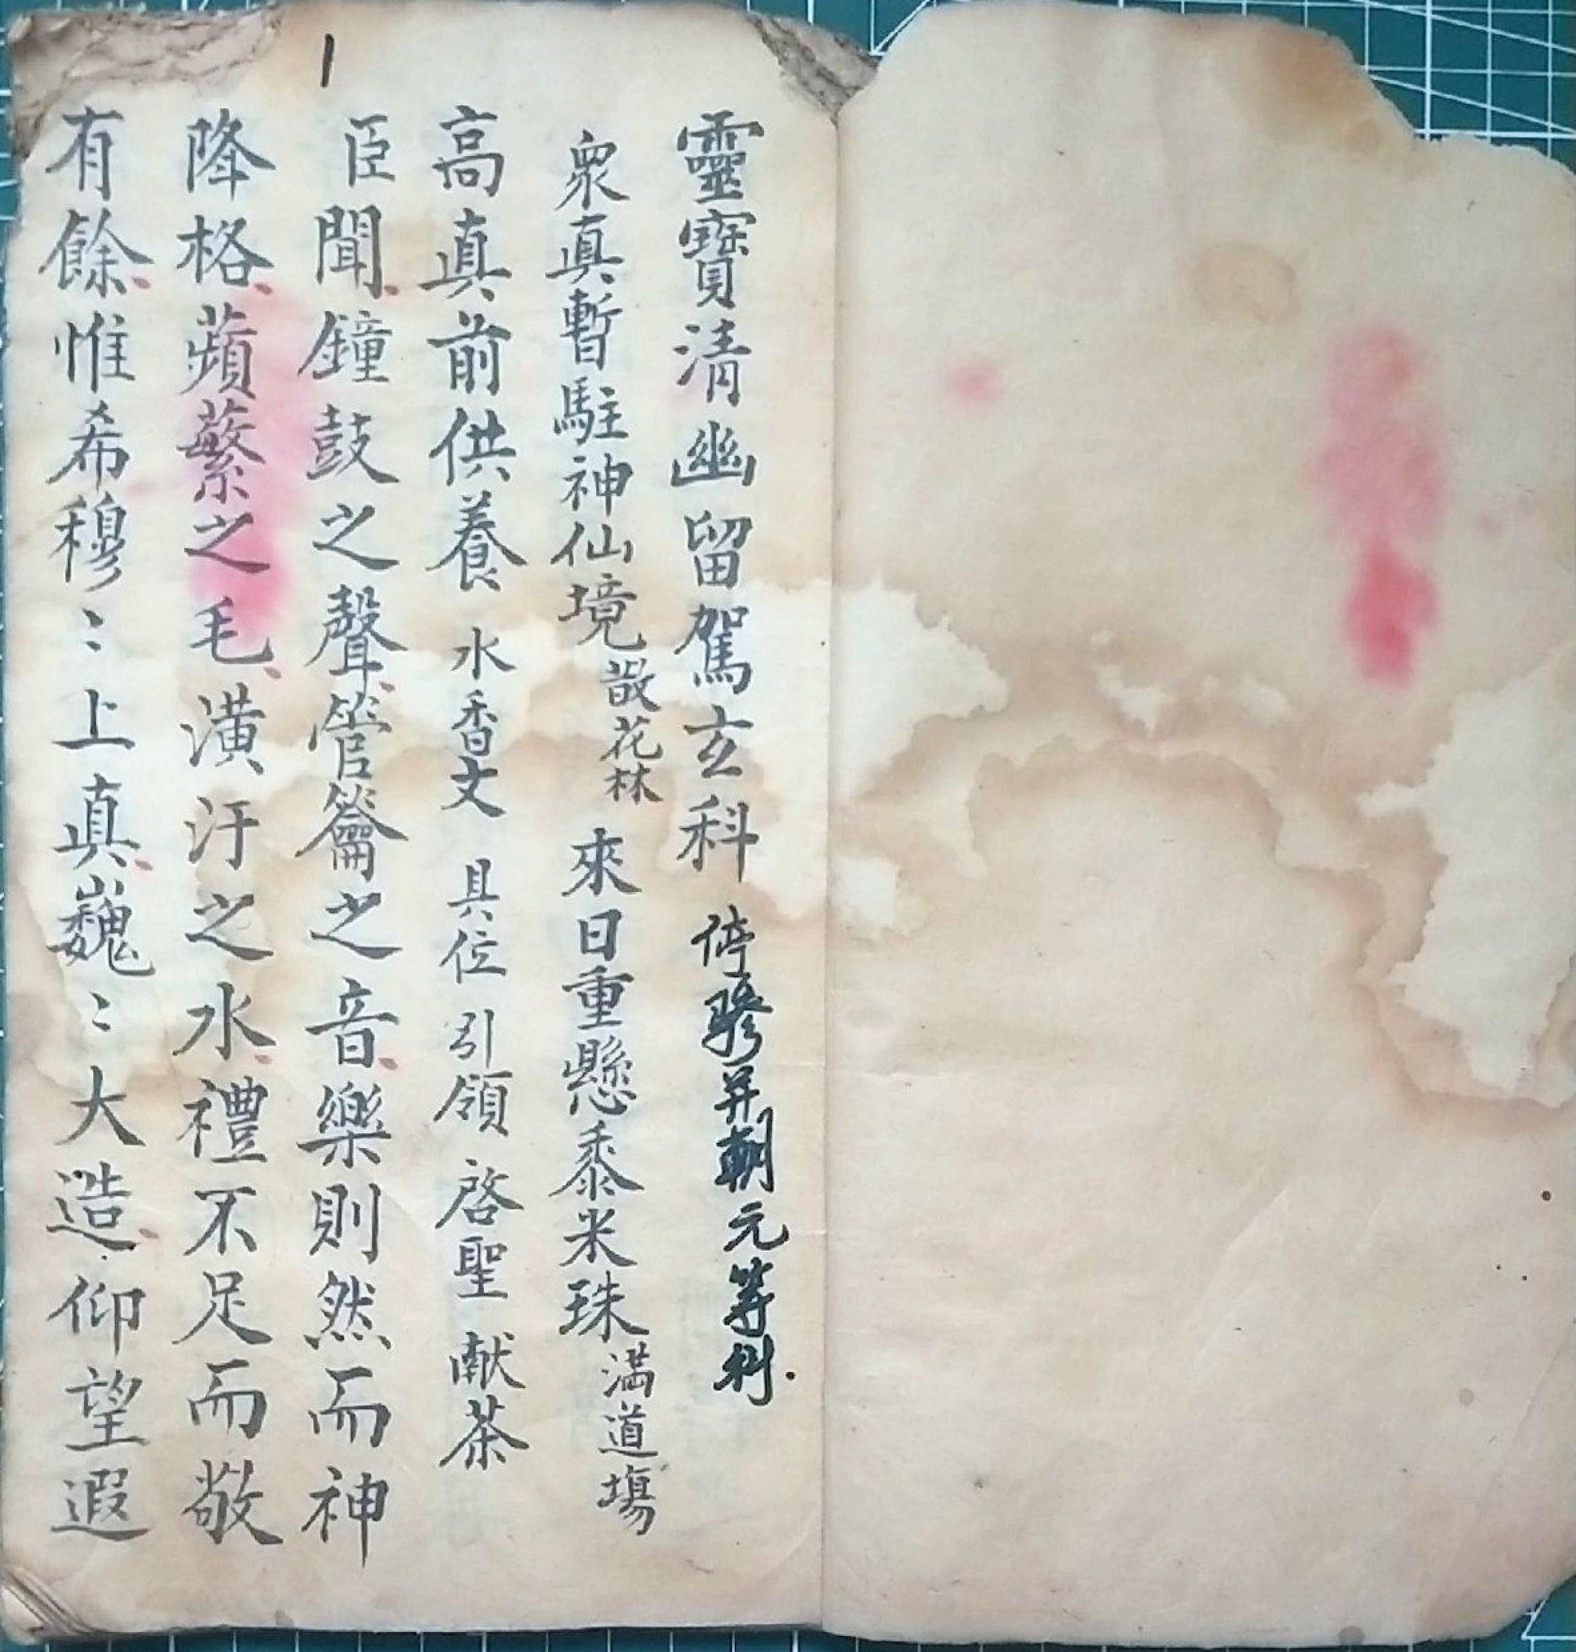 靈寶清幽留駕玄科 停驂并朝元等科.
眾真暫駐神仙境 散花林 來日重懸黍米珠 满道塲
高真前供養 水香文 具位 引領 啓聖 献茶
臣聞鐘鼓之聲管籥之音樂則然而神
降格蘋蘩之毛潢汙之水禮不足而敬
有餘惟希穆〻上真巍〻大造仰望遐
1